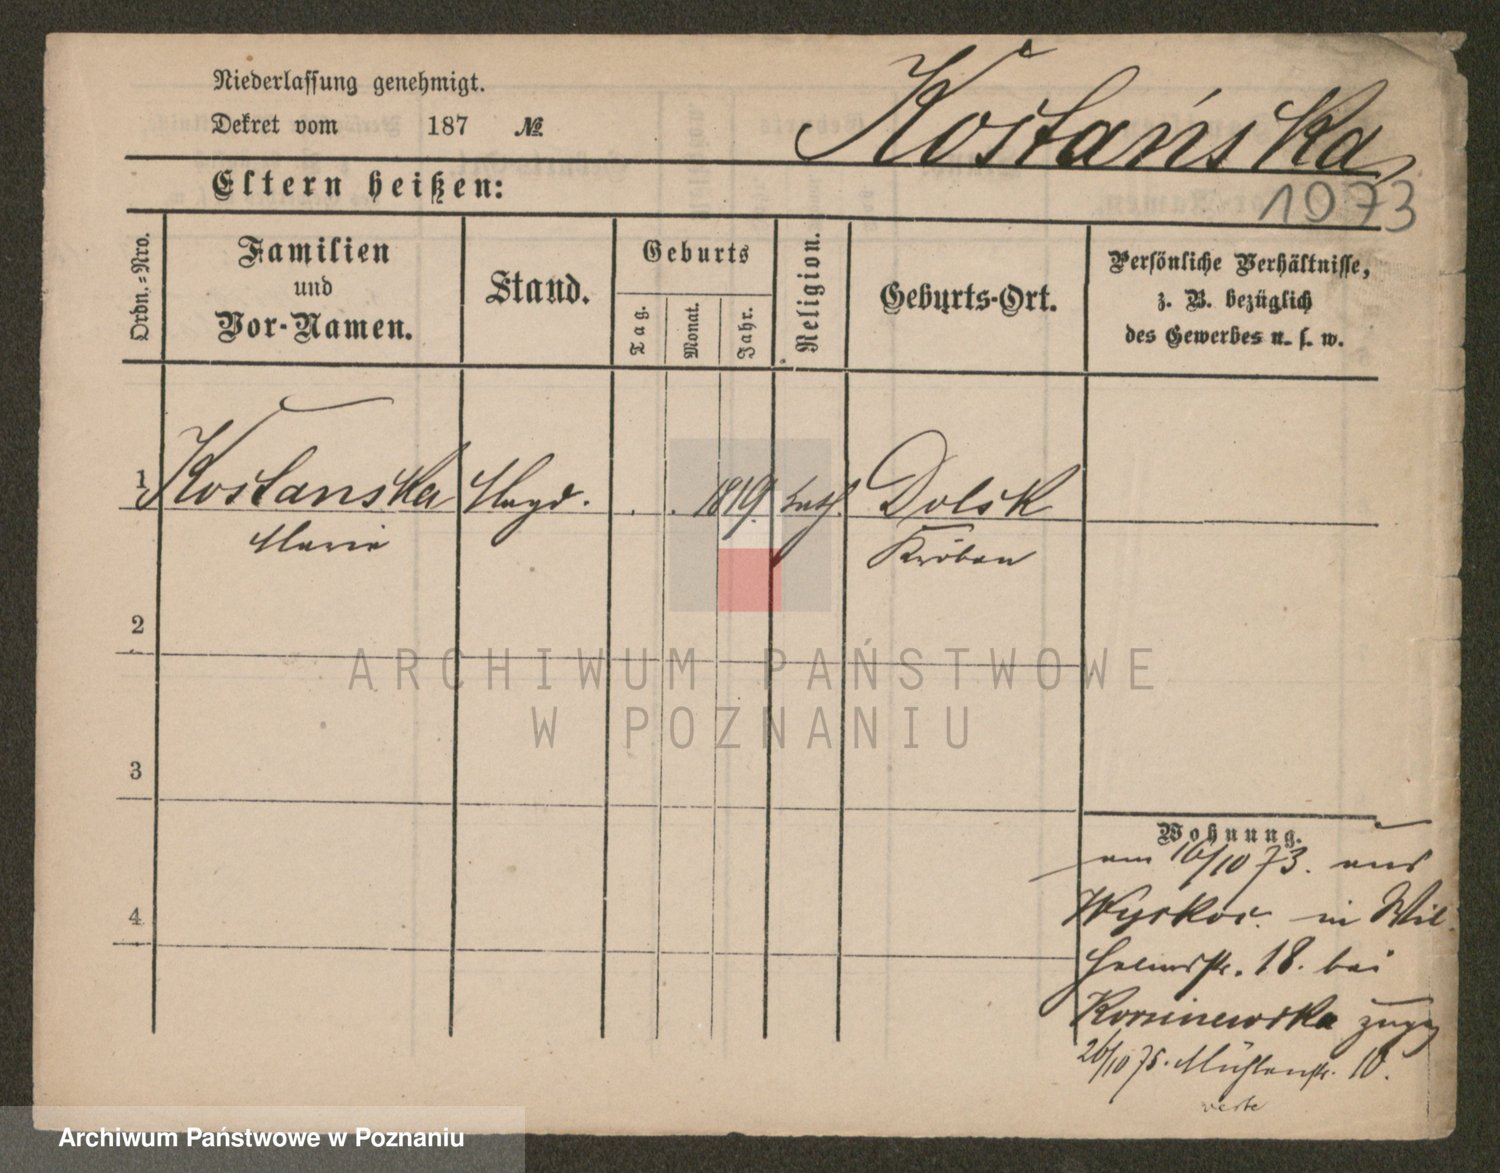 Niederlassung genehmigt.
Dekret vom 187 №
Kostańska
1973
Eltern heißen:
Ordn.-Nro.
Familien und Vor-Namen.
Stand.
Geburts
Tag.
Monat.
Jahr.
Religion.
Geburts-Ort.
Persönliche Verhältnisse,
z. B. bezüglich
des Gewerbes u. s. w.
1 Kostanska Magd. . . 1819. kath. Dolsk
Marie Kröben
2
3
4
Wohnung.
am 16/10 73. aus
Wyskoc. in Wil-
helmstr. 18. bei
zugez
26/10 75. Mühlenstr. 10.
verte
ARCHIWUM PAŃSTWOWE
W POZNANIU
Archiwum Państwowe w Poznaniu